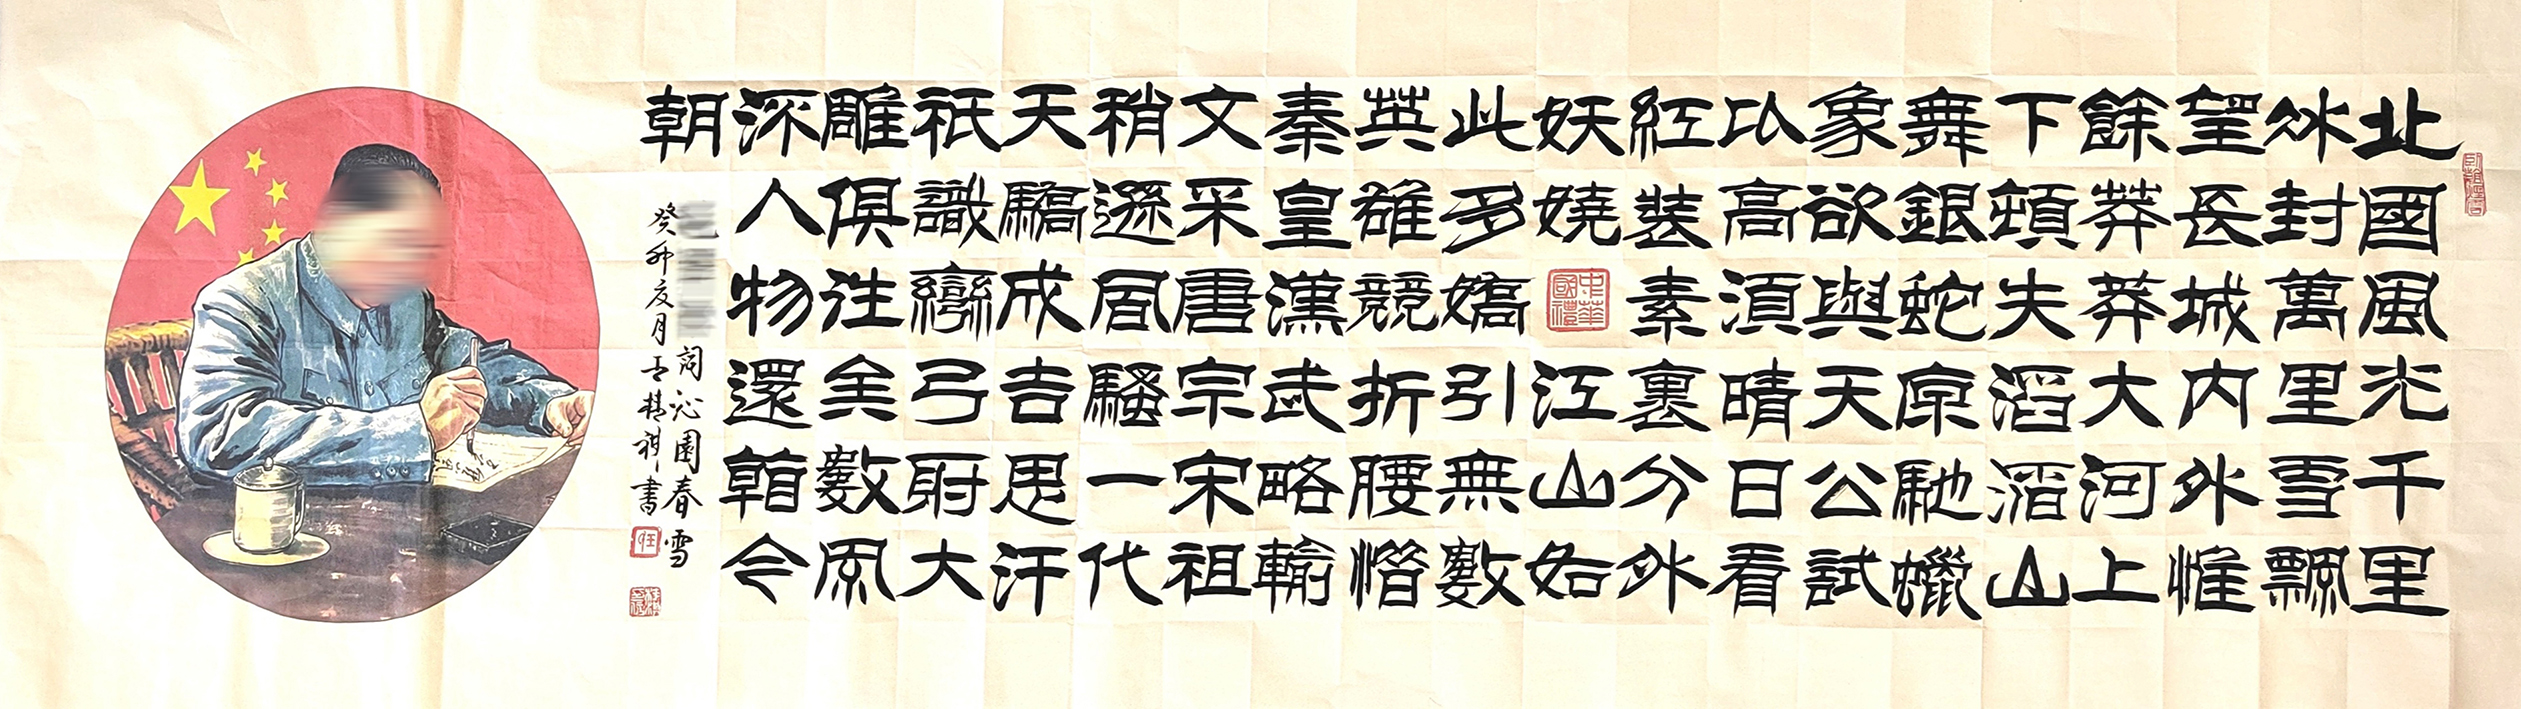 北國風光千里
冰封萬里雪飄
望長城内外惟
餘莽莽大河上
下頓失滔滔山
舞銀蛇原馳蠟
象欲與天公試
比高須晴日看
紅裝素裹分外
妖嬈
中華國禮
江山如
此多嬌引無數
英雄競折腰惜
秦皇漢武略輸
文采唐宗宋祖
稍遜風騷一代
天驕成吉思汗
祇識彎弓射大
雕俱往矣數風
流人物還看今
朝
詞沁園春雪
癸卯夏月書